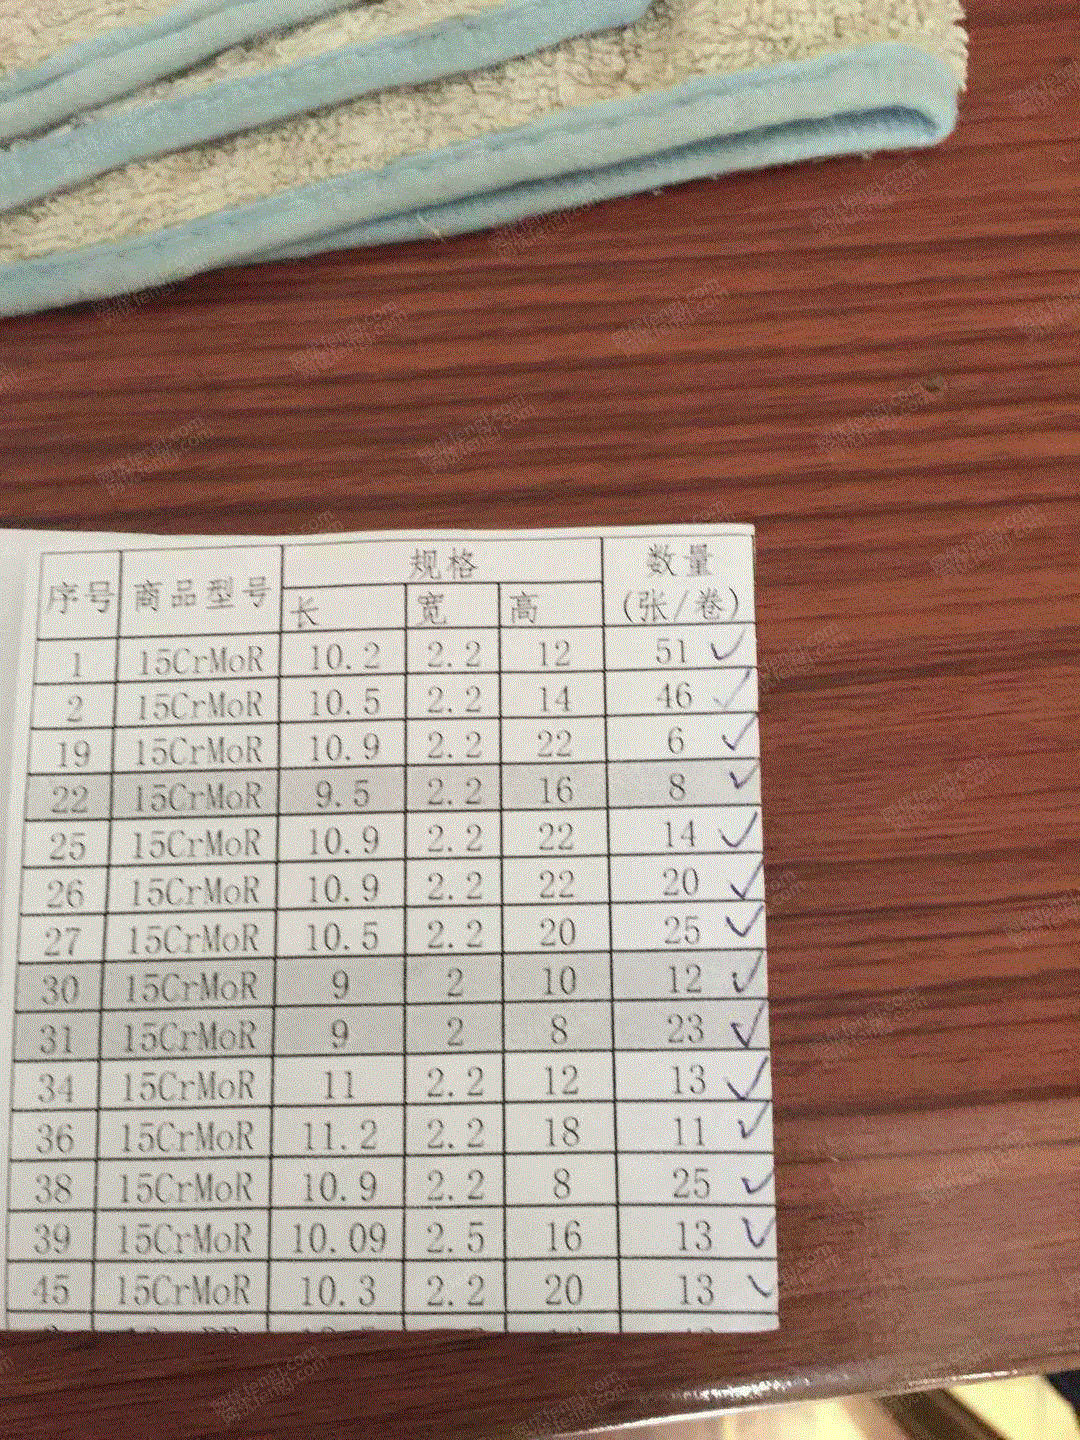 序号 商品型号 规格 数量
长 宽 高 (张/卷)
1 15CrMoR 10.2 2.2 12 51 ✓
2 15CrMoR 10.5 2.2 14 46 ✓
19 15CrMoR 10.9 2.2 22 6 ✓
22 15CrMoR 9.5 2.2 16 8 ✓
25 15CrMoR 10.9 2.2 22 14 ✓
26 15CrMoR 10.9 2.2 22 20 ✓
27 15CrMoR 10.5 2.2 20 25 ✓
30 15CrMoR 9 2 10 12 ✓
31 15CrMoR 9 2 8 23 ✓
34 15CrMoR 11 2.2 12 13 ✓
36 15CrMoR 11.2 2.2 18 11 ✓
38 15CrMoR 10.9 2.2 8 25 ✓
39 15CrMoR 10.09 2.5 16 13 ✓
45 15CrMoR 10.3 2.2 20 13 ✓